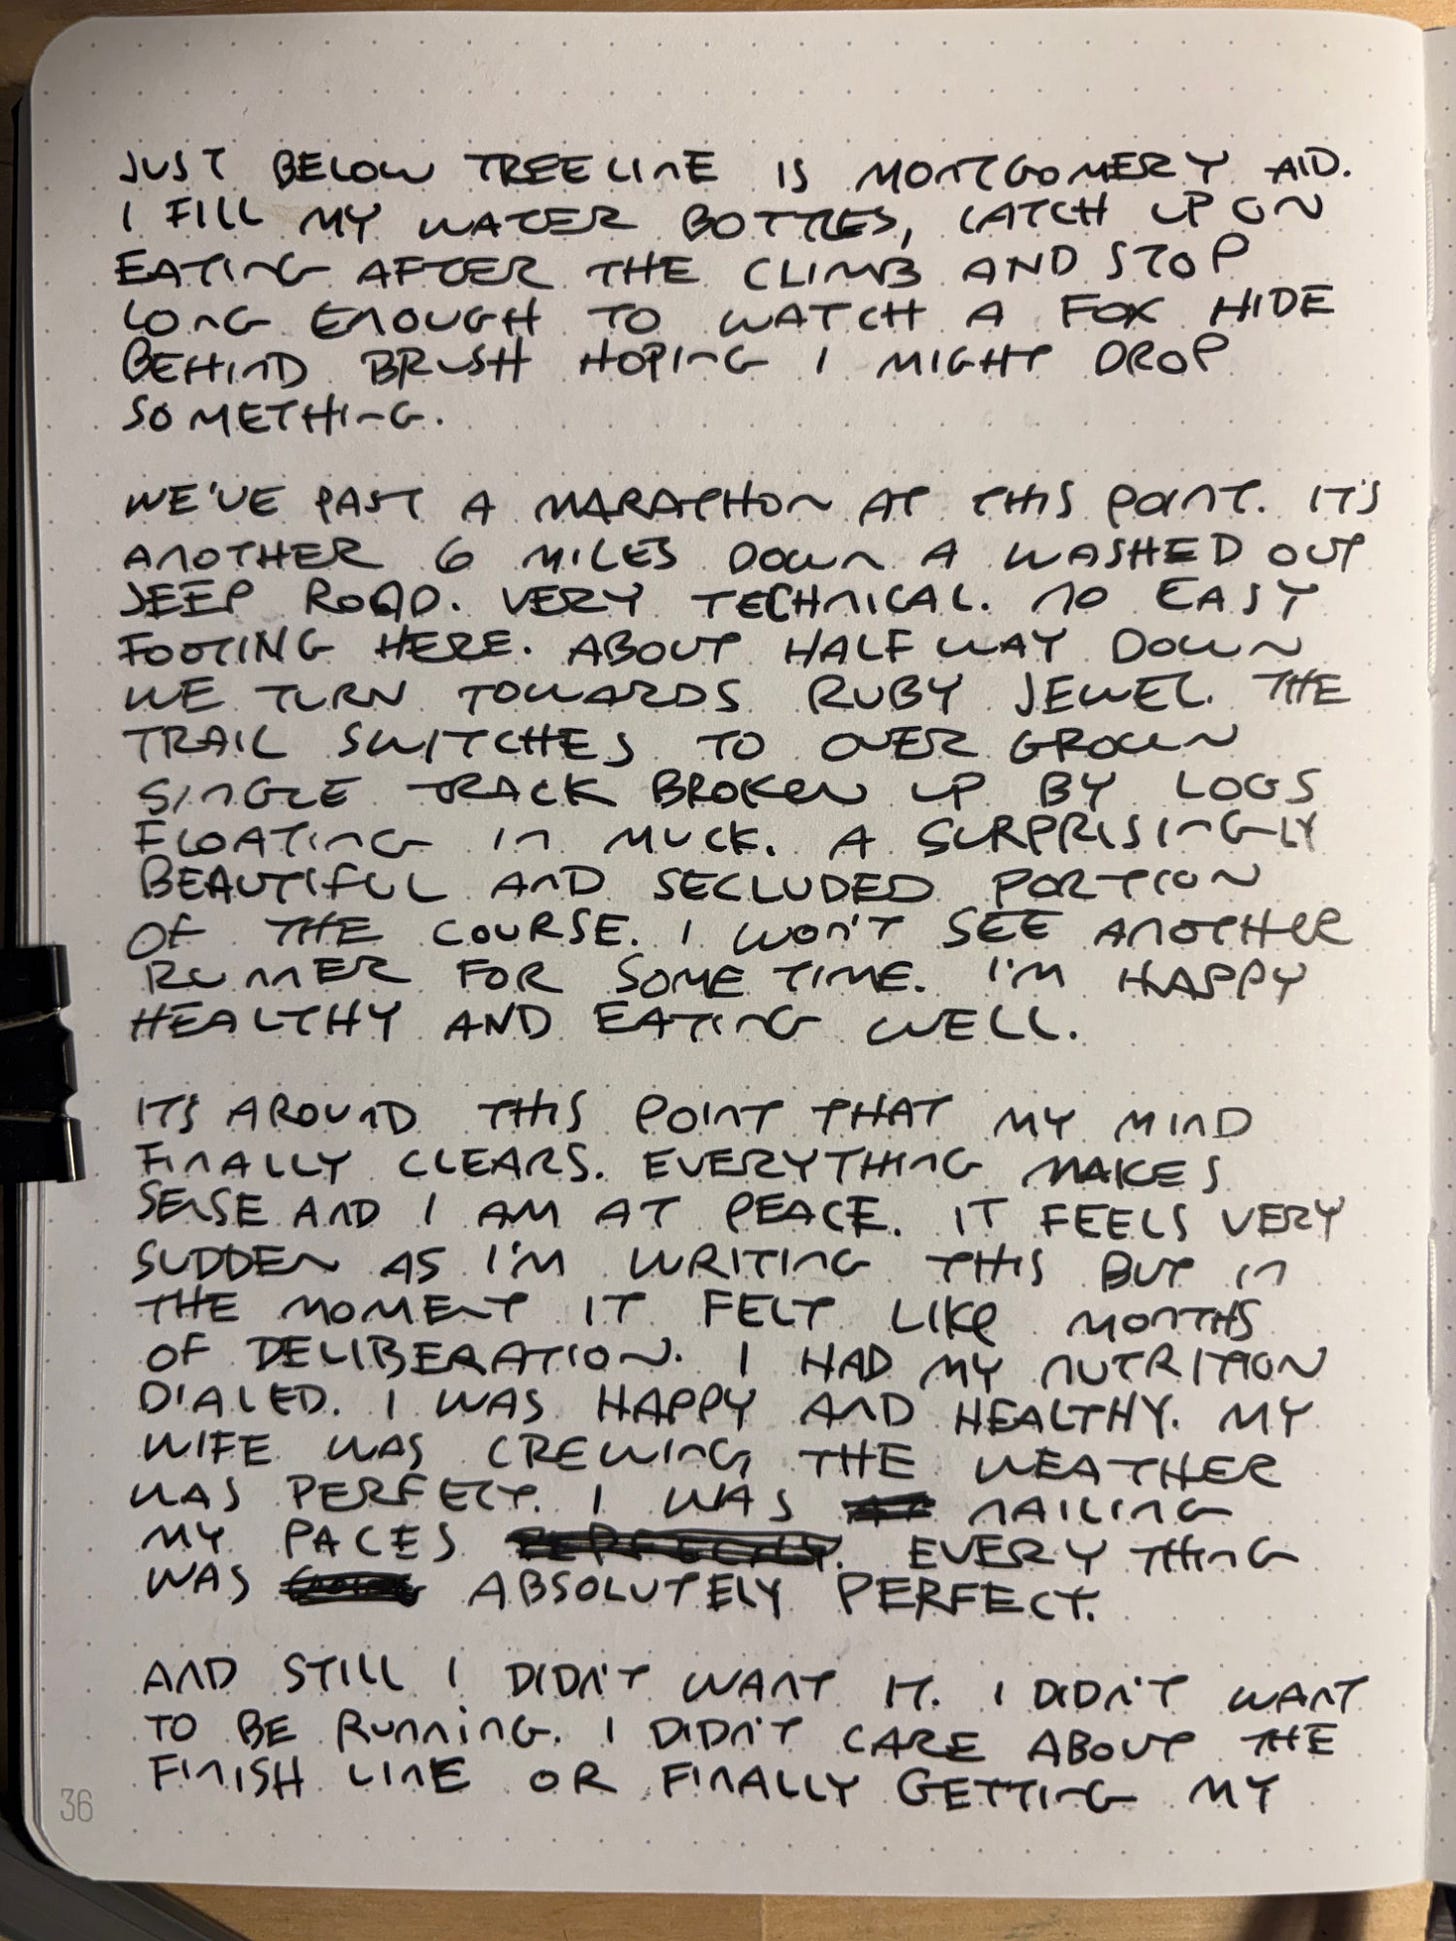 JUST BELOW TREELINE IS MONTGOMERY AID.
I FILL MY WATER BOTTLES, CATCH UP ON
EATING AFTER THE CLIMB AND STOP
LONG ENOUGH TO WATCH A FOX HIDE
BEHIND BRUSH HOPING I MIGHT DROP
SOMETHING.
WE'VE PAST A MARATHON AT THIS POINT. IT'S
ANOTHER 6 MILES DOWN A WASHED OUT
JEEP ROAD. VERY TECHNICAL. NO EASY
FOOTING HERE. ABOUT HALF WAY DOWN
WE TURN TOWARDS RUBY JEWEL. THE
TRAIL SWITCHES TO OVER GROWN
SINGLE TRACK BROKEN UP BY LOGS
FLOATING IN MUCK. A SURPRISINGLY
BEAUTIFUL AND SECLUDED PORTION
OF THE COURSE. I WON'T SEE ANOTHER
RUNNER FOR SOME TIME. I'M HAPPY
HEALTHY AND EATING WELL.
ITS AROUND THIS POINT THAT MY MIND
FINALLY CLEARS. EVERYTHING MAKES
SENSE AND I AM AT PEACE. IT FEELS VERY
SUDDEN AS I'M WRITING THIS BUT IN
THE MOMENT IT FELT LIKE MONTHS
OF DELIBERATION. I HAD MY NUTRITION
DIALED. I WAS HAPPY AND HEALTHY. MY
WIFE WAS CREWING THE WEATHER
WAS PERFECT. I WAS NAILING
MY PACES PERFECTLY. EVERY THING
WAS ABSOLUTELY PERFECT.
AND STILL I DIDN'T WANT IT. I DIDN'T WANT
TO BE RUNNING. I DIDN'T CARE ABOUT THE
FINISH LINE OR FINALLY GETTING MY
36